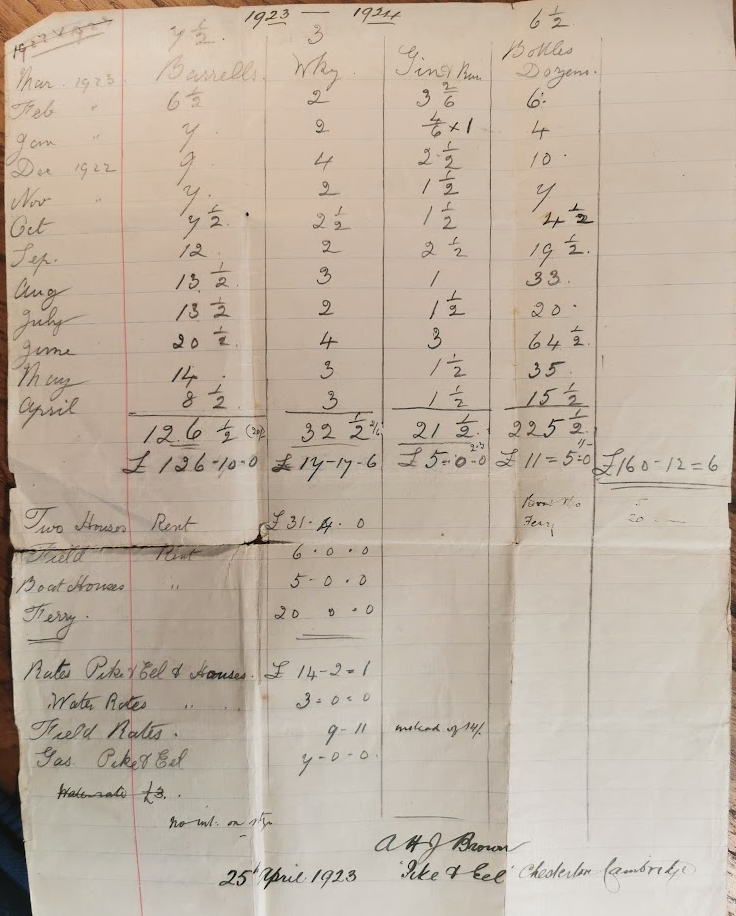 1923 — 1924
7 ½ 3 6 ½
Barrells. Wky. Gin & Rum Bottles Dozens.
Mar. 1923
Feb " 6 ½ 2 3 2/6 6
Jan " 7 2 4/6 x 1 4
Dec 1922 9 4 2 ½ 10
Nov " 7 2 1 ½ 7
Oct 7 ½ 2 ½ 1 ½ 4 ½
Sep. 12 2 2 ½ 19 ½
Aug 13 ½ 3 1 33
July 13 ½ 2 1 ½ 20
June 20 ½ 4 3 64 ½
May 14 3 1 ½ 35
April 8 ½ 3 1 ½ 15 ½
126 ½ (20/ 32 ½ 21 ½ 225 ½
£ 126-10-0 £ 17-17-6 £ 5-0-0 £ 11=5=0 £160-12=6
Two Houses Rent £ 31. 4. 0
Ferry 20
Field Rent 6. 0. 0
Boat Houses " 5-0.0
Ferry. 20 0.0
Rates Pike & Eel & Houses. £ 14-2=1
Water Rates " " 3=0=0
Field Rates. 9-11 instead of 14/.
Gas Pike & Eel 7-0-0
Water rate £3.
no int. on
A H J Brown
25th April 1923 'Pike & Eel' Chesterton Cambridge